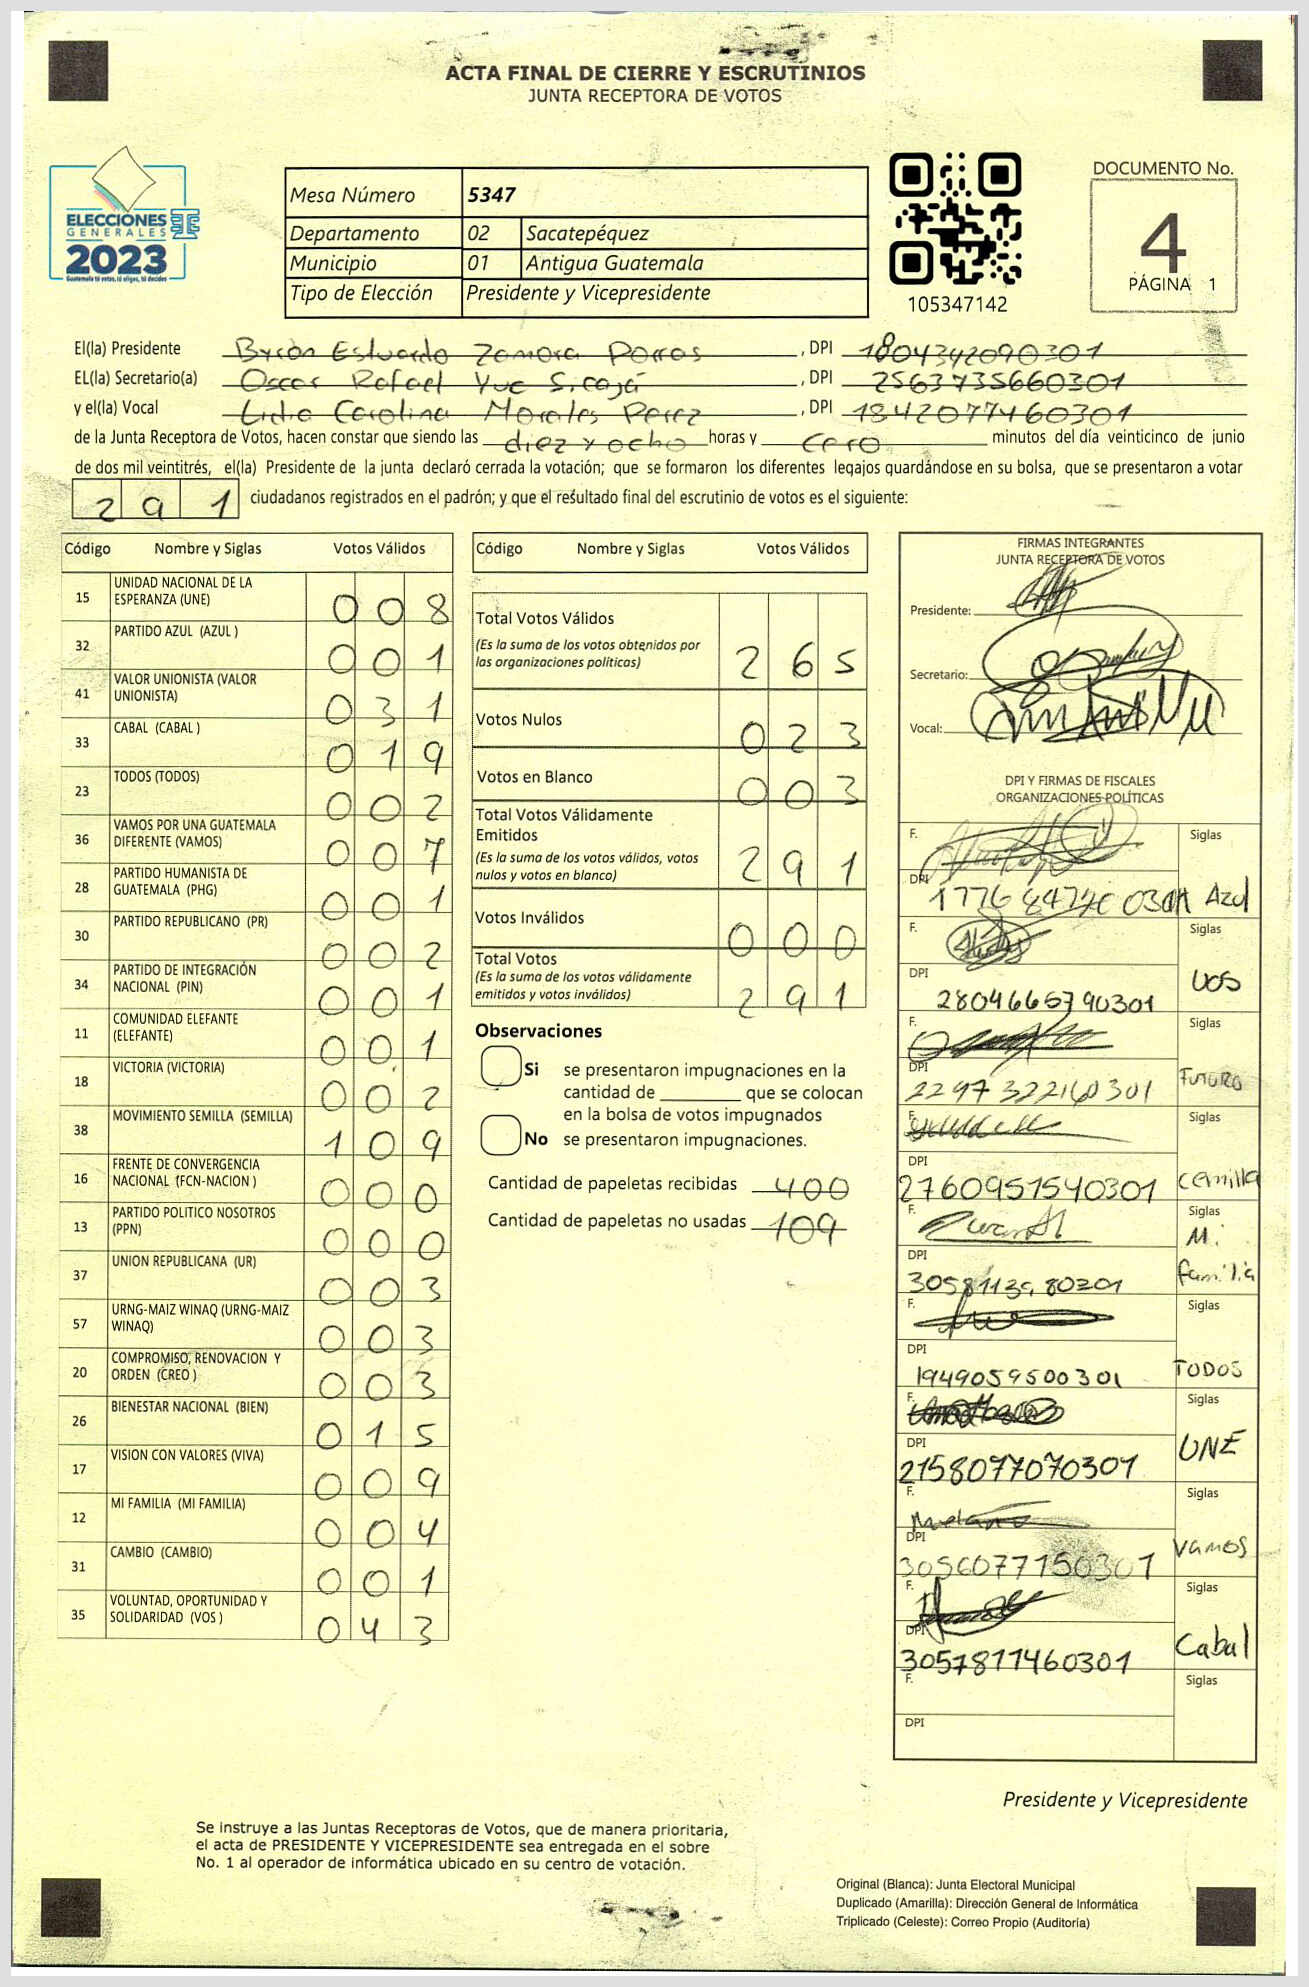 ACTA FINAL DE CIERRE Y ESCRUTINIOS
JUNTA RECEPTORA DE VOTOS
ELECCIONES
GENERALES
2023
Guatemala tú votas, tú eliges, tú decides
Mesa Número 5347
Departamento 02 Sacatepéquez
Municipio 01 Antigua Guatemala
Tipo de Elección Presidente y Vicepresidente
105347142
DOCUMENTO No.
4
PÁGINA 1
El(la) Presidente Byron Estuardo Zamora Porras, DPI 1804342090301
EL(la) Secretario(a) Oscar Rafael Yuc Sicajá, DPI 2563735660301
y el(la) Vocal Lidia Carolina Morales Perez, DPI 1842077460301
de la Junta Receptora de Votos, hacen constar que siendo las diez y ocho horas y cero minutos del día veinticinco de junio
de dos mil veintitrés, el(la) Presidente de la junta declaró cerrada la votación; que se formaron los diferentes legajos quardándose en su bolsa, que se presentaron a votar
291 ciudadanos registrados en el padrón; y que el resultado final del escrutinio de votos es el siguiente:
Código Nombre y Siglas Votos Válidos
15 UNIDAD NACIONAL DE LA ESPERANZA (UNE) 008
32 PARTIDO AZUL (AZUL ) 001
41 VALOR UNIONISTA (VALOR UNIONISTA) 031
33 CABAL (CABAL ) 019
23 TODOS (TODOS) 002
36 VAMOS POR UNA GUATEMALA DIFERENTE (VAMOS) 007
28 PARTIDO HUMANISTA DE GUATEMALA (PHG) 001
30 PARTIDO REPUBLICANO (PR) 002
34 PARTIDO DE INTEGRACIÓN NACIONAL (PIN) 001
11 COMUNIDAD ELEFANTE (ELEFANTE) 001
18 VICTORIA (VICTORIA) 002
38 MOVIMIENTO SEMILLA (SEMILLA) 109
16 FRENTE DE CONVERGENCIA NACIONAL (FCN-NACION ) 000
13 PARTIDO POLITICO NOSOTROS (PPN) 000
37 UNION REPUBLICANA (UR) 003
57 URNG-MAIZ WINAQ (URNG-MAIZ WINAQ) 003
20 COMPROMISO, RENOVACION Y ORDEN (CREO ) 003
26 BIENESTAR NACIONAL (BIEN) 015
17 VISION CON VALORES (VIVA) 009
12 MI FAMILIA (MI FAMILIA) 004
31 CAMBIO (CAMBIO) 001
35 VOLUNTAD, OPORTUNIDAD Y SOLIDARIDAD (VOS ) 043
Código Nombre y Siglas Votos Válidos
Total Votos Válidos 265
(Es la suma de los votos obtenidos por
las organizaciones políticas)
Votos Nulos 023
Votos en Blanco 003
Total Votos Válidamente
Emitidos 291
(Es la suma de los votos válidos, votos
nulos y votos en blanco)
Votos Inválidos 000
Total Votos 291
(Es la suma de los votos válidamente
emitidos y votos inválidos)
Observaciones
Si se presentaron impugnaciones en la
cantidad de ________ que se colocan
en la bolsa de votos impugnados
No se presentaron impugnaciones.
Cantidad de papeletas recibidas 400
Cantidad de papeletas no usadas 109
FIRMAS INTEGRANTES
JUNTA RECEPTORA DE VOTOS
Presidente:
Secretario:
Vocal:
DPI Y FIRMAS DE FISCALES
ORGANIZACIONES POLÍTICAS
F. Siglas
DPI Azul
F. Siglas
DPI 2804665790301 VOS
F. Siglas
DPI 2297322160301 FUTURO
F. Siglas
DPI 2760951540301 cemilla
F. Siglas
DPI Mi familia
F. Siglas
DPI 1949059500301 TODOS
F. Siglas
DPI 2158077070301 UNE
F. Siglas
DPI 3056077150301 Vamos
F. Siglas
DPI 3057811460301 Cabal
F. Siglas
DPI
Presidente y Vicepresidente
Se instruye a las Juntas Receptoras de Votos, que de manera prioritaria,
el acta de PRESIDENTE Y VICEPRESIDENTE sea entregada en el sobre
No. 1 al operador de informática ubicado en su centro de votación.
Original (Blanca): Junta Electoral Municipal
Duplicado (Amarilla): Dirección General de Informática
Triplicado (Celeste): Correo Propio (Auditoría)